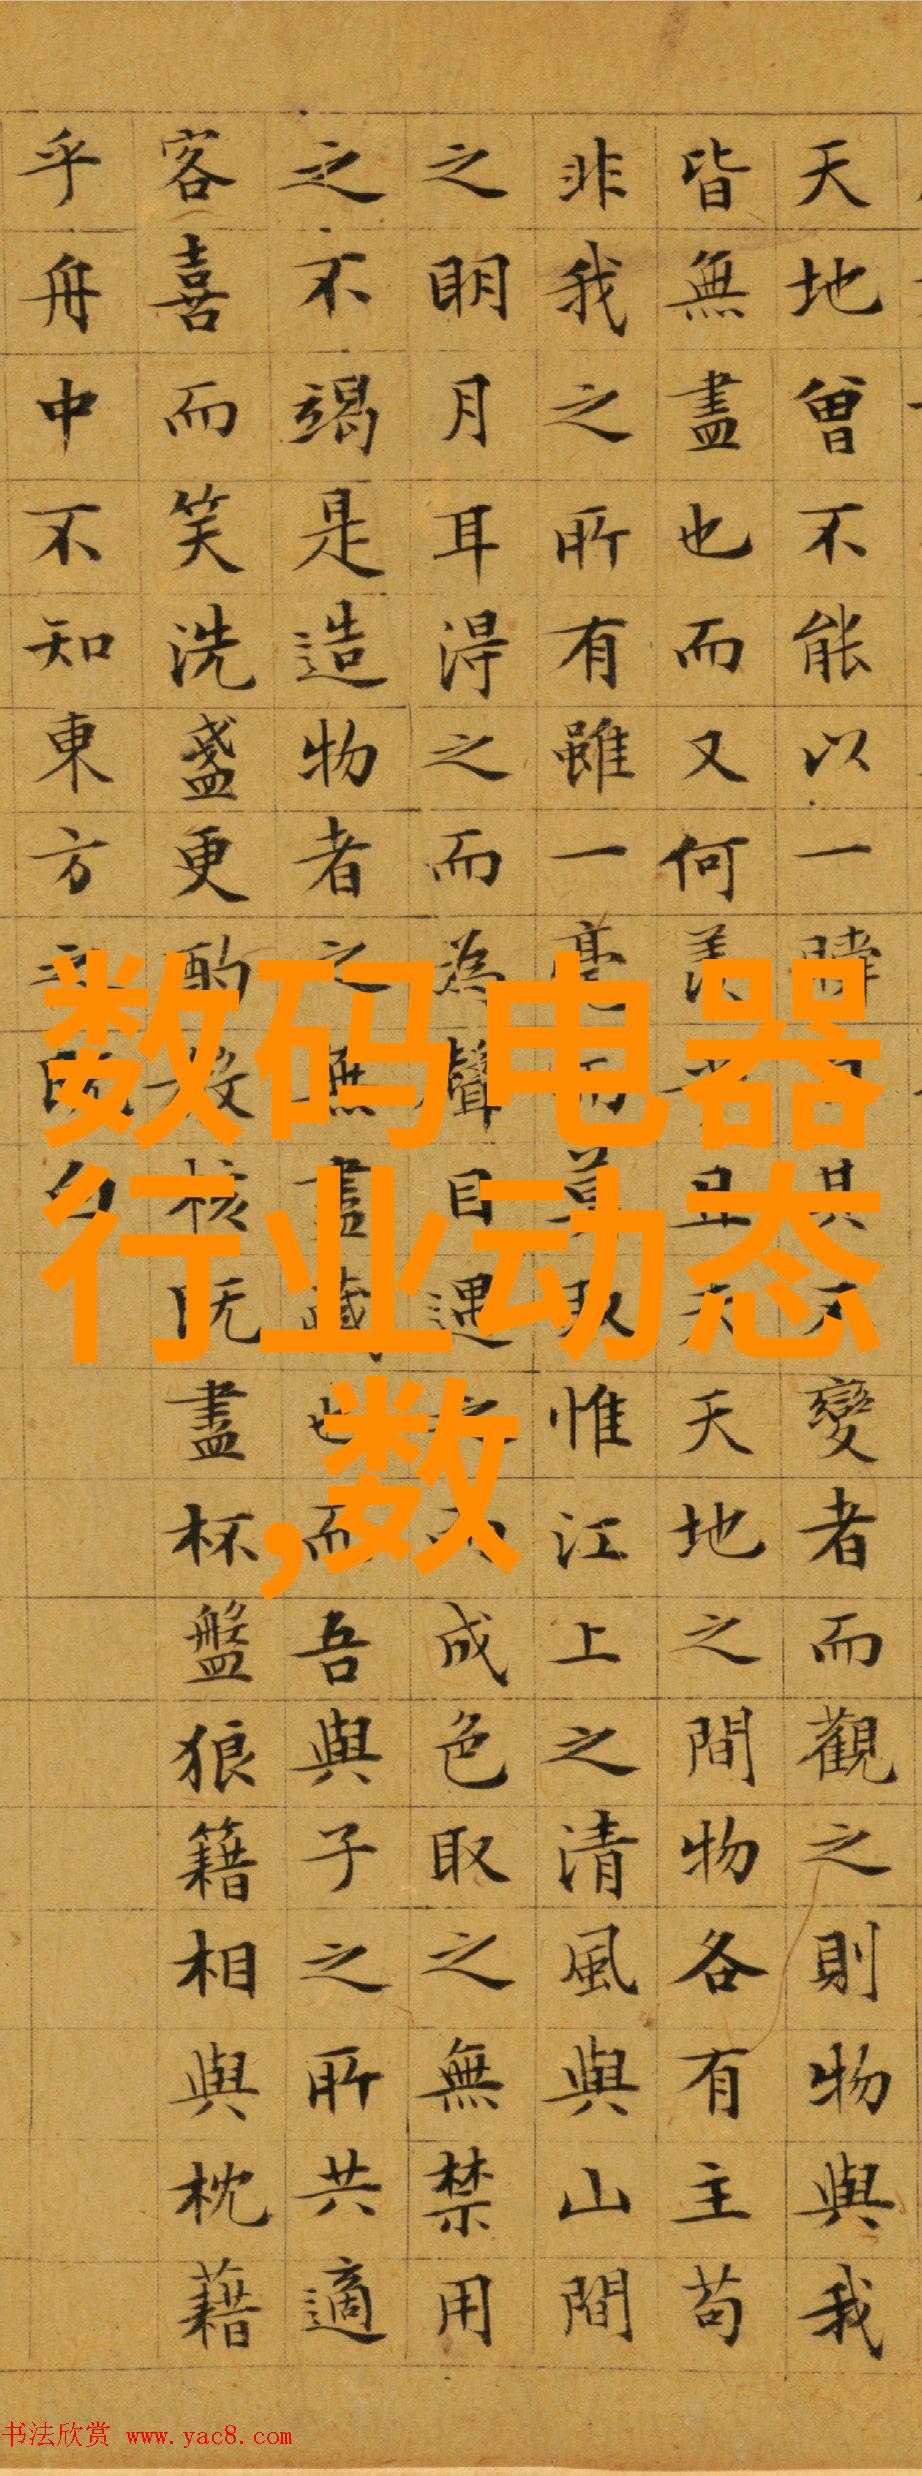 天地曾不能以一瞬自其不變者而觀之則物與我
皆無盡也而又何羨乎且夫天地之間物各有主苟
非我之所有雖一毫而莫取惟江上之清風與山間
之明月耳得之而為聲目遇之而成色取之無禁用
之不竭是造物者之無盡藏也而吾與子之所共適
客喜而笑洗盞更酌肴核既盡杯盤狼籍相與枕藉
乎舟中不知東方之既白
数码电器
行业动态
,数
书法欣赏 www.yac8.com